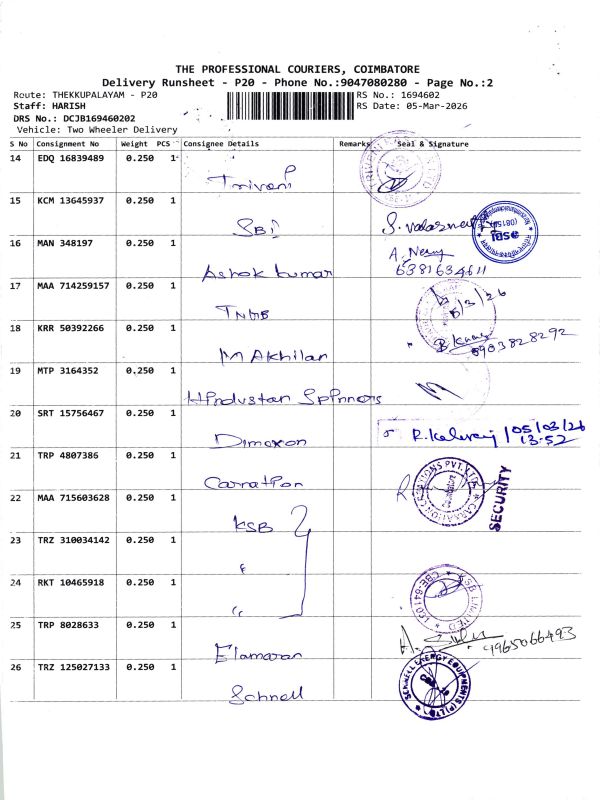 THE PROFESSIONAL COURIERS, COIMBATORE
Delivery Runsheet - P20 - Phone No.:9047080280 - Page No.:2
Route: THEKKUPALAYAM - P20
RS No.: 1694602
Staff: HARISH
RS Date: 05-Mar-2026
DRS No.: DCJB169460202
Vehicle: Two Wheeler Delivery
S No Consignment No Weight PCS Consignee Details Remarks Seal & Signature
14 EDQ 16839489 0.250 1
Triveni
15 KCM 13645937 0.250 1
SBI
16 MAN 348197 0.250 1
Ashok kumar
6381634611
17 MAA 714259157 0.250 1
TNEB
18 KRR 50392266 0.250 1
M Akhilan
9903828292
19 MTP 3164352 0.250 1
Hindustan Spinners
20 SRT 15756467 0.250 1
Dimoxon
05/03/26
13:52
21 TRP 4807386 0.250 1
Carnation
SECURITY
22 MAA 715603628 0.250 1
KSB
23 TRZ 310034142 0.250 1
"
24 RKT 10465918 0.250 1
"
25 TRP 8028633 0.250 1
Elamaran
9965066493
26 TRZ 125027133 0.250 1
Schnell
SCHNELL ENERGY EQUIPMENTS (P) LTD